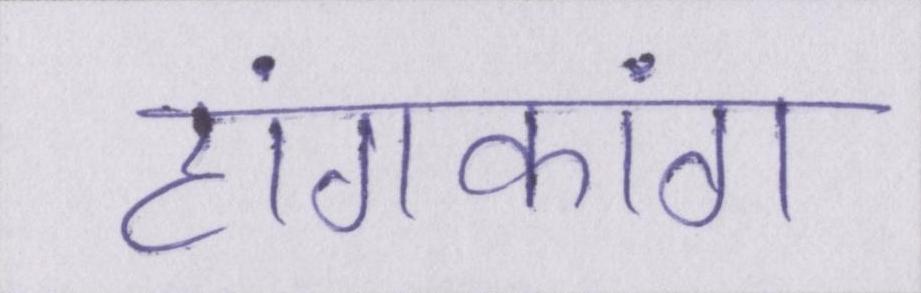 हांगकांग